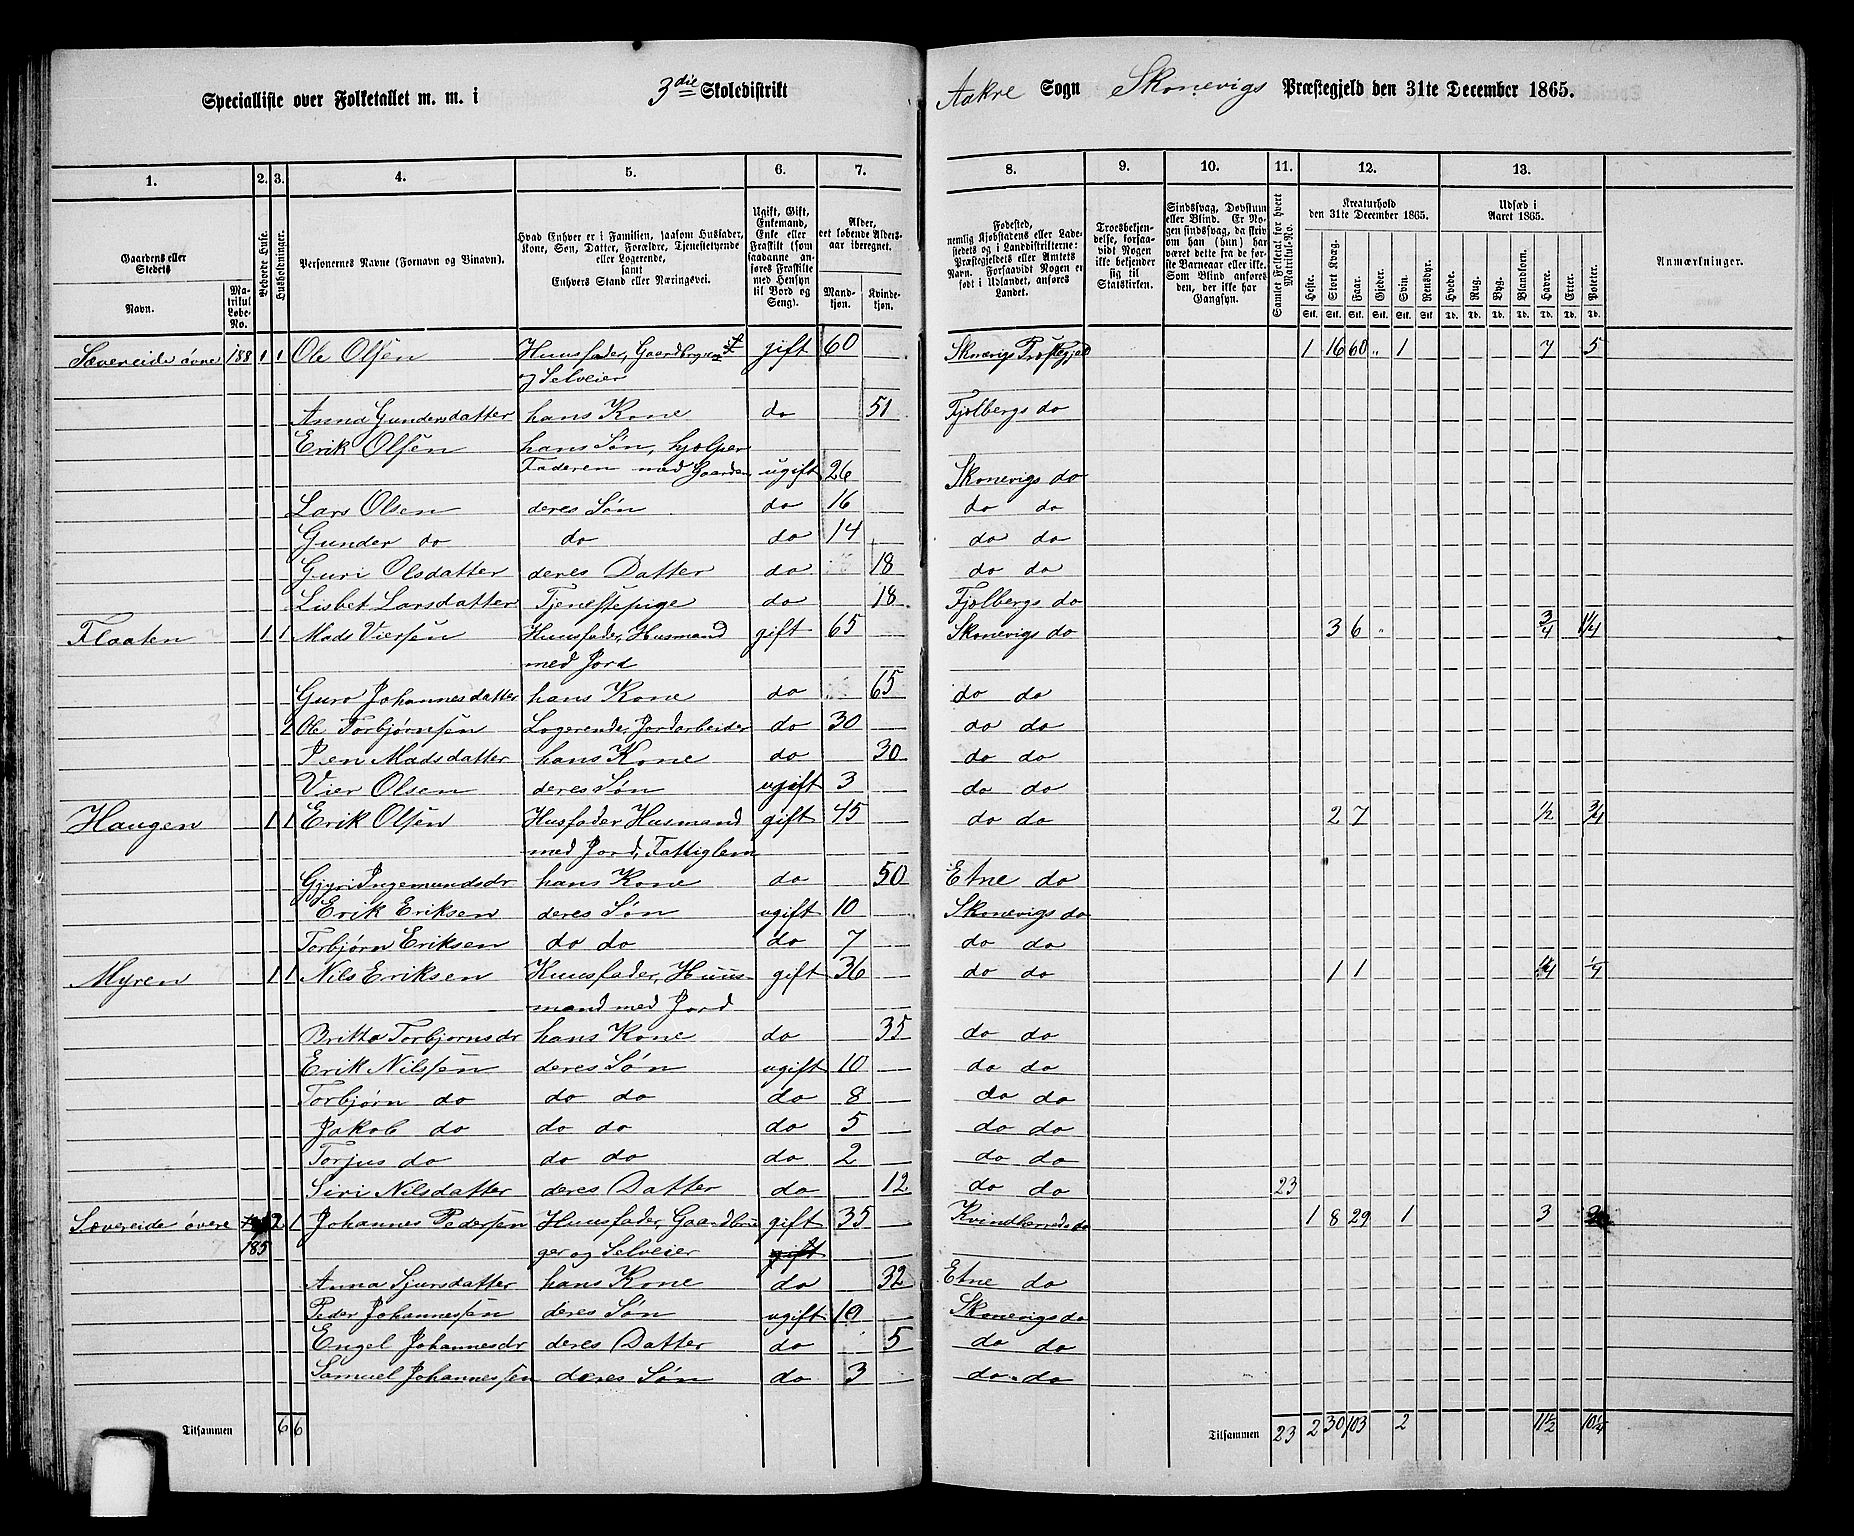 Specialliste over Folketallet m. m. i 3die Skoledistrikt Aakre Sogn Skonevigs Præstegjeld den 31te December 1865.
1. 2. 3. 4. 5. 6. 7. 8. 9. 10. 11. 12. 13.
Gaardens eller Stedets
Navn.
Matrikul Løbe-No.
Bebo­ede Huse.
Husholdninger.
Personernes Navne (Fornavn og Binavn).
Hvad Enhver er i Familien, saasom Husfader, Kone, Søn, Datter, Forældre, Tjenestetyende eller Logerende, samt Enhvers Stand eller Næringsvei.
Ugift, Gift, Enkemand, Enke eller Fraskilt (som saadanne anføres Fraskilte med Hensyn til Bord og Seng).
Alder, det løbende Aldersaar iberegnet.
Mandkjøn. Kvindekjøn.
Fødested, nemlig Kjøbstadens eller Ladestedets og i Landdistrikterne: Præstegjeldets eller Amtets Navn. Forsaavidt Nogen er født i Udlandet, anføres Landet.
Troesbekjendelse, forsaavidt Nogen ikke bekjender sig til Statskirken.
Sindssvag, Døvstum eller Blind. Er Nogen sindssvag, da skriv om han (hun) har været dette fra de første Barneaar eller ikke. Som Blind anføres den, der ikke har Gangsyn.
Samlet Folketal for hvert Matrikul-No.
Kreaturhold den 31te December 1865.
Heste. Stort Kvæg. Faar. Gjeder. Svin. Rensdyr.
Udsæd i Aaret 1865.
Hvede. Rug. Byg. Blandkorn. Havre. Erter. Poteter.
Anmærkninger.
Sævereide øvre 188 1 1 Ole Olsen Huusfader, Gaardbruger gift 60 Skonevigs Præstegjeld 1 16 60 " 1 7 5
og Selveier
Anna Gundersdatter hans Kone do 51 Fjelbergs do
Erik Olsen hans Søn, hjelper
Faderen med Gaarden ugift 26 Skonevigs do
Lars Olsen deres Søn do 16 do do
Gunder do do do 14 do do
Guri Olsdatter deres Datter do 18 do do
Lisbet Larsdatter Tjenestepige do 18 Fjelbergs do
Flaaten 1 1 Mads Viersen Huusfader, Husmand gift 65 Skonevigs do 3 6 " 3/4 1 1/4
med Jord
Guro Johannesdatter hans Kone do 65 do do
2 Ole Torbjørnsen Logerende, Jordarbeider do 30 do do
Madsdatter hans Kone do 30 do do
Vier Olsen deres Søn ugift 3 do do
Haugen 1 1 Erik Olsen Husfader Husmand gift 45 do do 2 7 1/2 3/4
med Jord, Fattiglem
Gjyri Ingemundsdr hans Kone do 50 Etne do
Erik Eriksen deres Søn ugift 10 Skonevigs do
Torbjørn Eriksen do do do 7 do do
Myren 1 1 Nils Eriksen Huusfader, Huus- gift 36 do do 1 1 1/4 1/4
mand med Jord
Britta Torbjørnsdr hans Kone do 35 do do
Erik Nilsen deres Søn ugift 10 do do
Torbjørn do do do do 8 do do
Jakob do do do do 5 do do
Torjus do do do do 2 do do
Siri Nilsdatter deres Datter do 12 do do 23
Sævereide øvre 2 1 Johannes Pedersen Huusfader, Gaardbru- gift 35 Kvindherreds do 1 8 29 1 3
185 ger og Selveier gift
Anna Sjursdatter hans Kone do 32 Etne do
Peder Johannessen deres Søn ugift 10 Skonevigs do
Engel Johannesdr deres Datter do 5 do do
Samuel Johannessen deres Søn do 3 do do
Tilsammen 6 6 Tilsammen 23 2 30 103 2 11 1/2 10 1/4